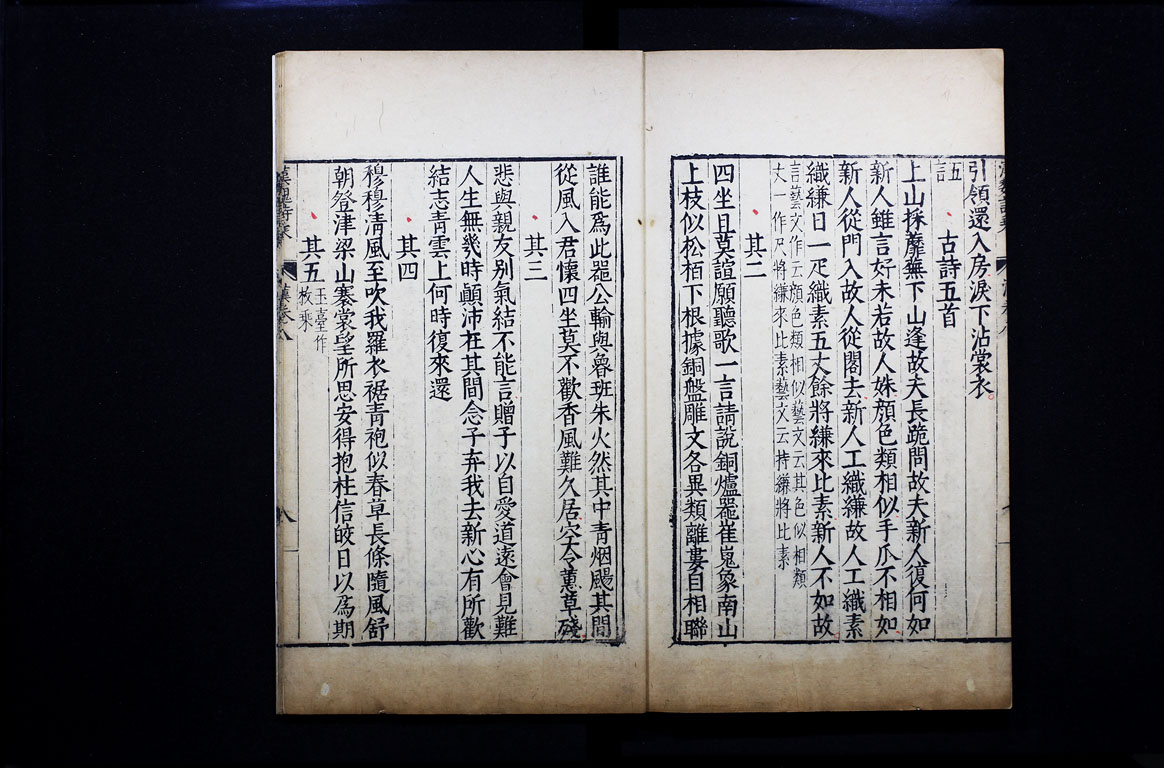 引領還入房淚下沾裳衣
五言
古詩五首
上山採蘼蕪下山逢故夫長跪問故夫新人復何如
新人雖言好未若故人姝顏色類相似手爪不相如
新人從門入故人從閤去新人工織縑故人工織素
織縑日一疋織素五丈餘將縑來比素新人不如故
言藝文作云顏色類相似藝文云其色似相類
丈一作尺將縑來比素藝文云持縑將比素
其二
四坐且莫諠願聽歌一言請說銅爐器崔嵬象南山
上枝似松栢下根據銅盤雕文各異類離婁自相聯
誰能爲此器公輸與魯班朱火然其中青烟颺其間
從風入君懷四坐莫不歡香風難久居空令蕙草殘
其三
悲與親友別氣結不能言贈子以自愛道遠會見難
人生無幾時顛沛在其間念子弃我去新心有所歡
結志青雲上何時復來還
其四
穆穆清風至吹我羅衣裾青袍似春草長條隨風舒
朝登津梁山褰裳望所思安得抱柱信皎日以爲期
其五
玉臺作
枚乘
漢卷八
八